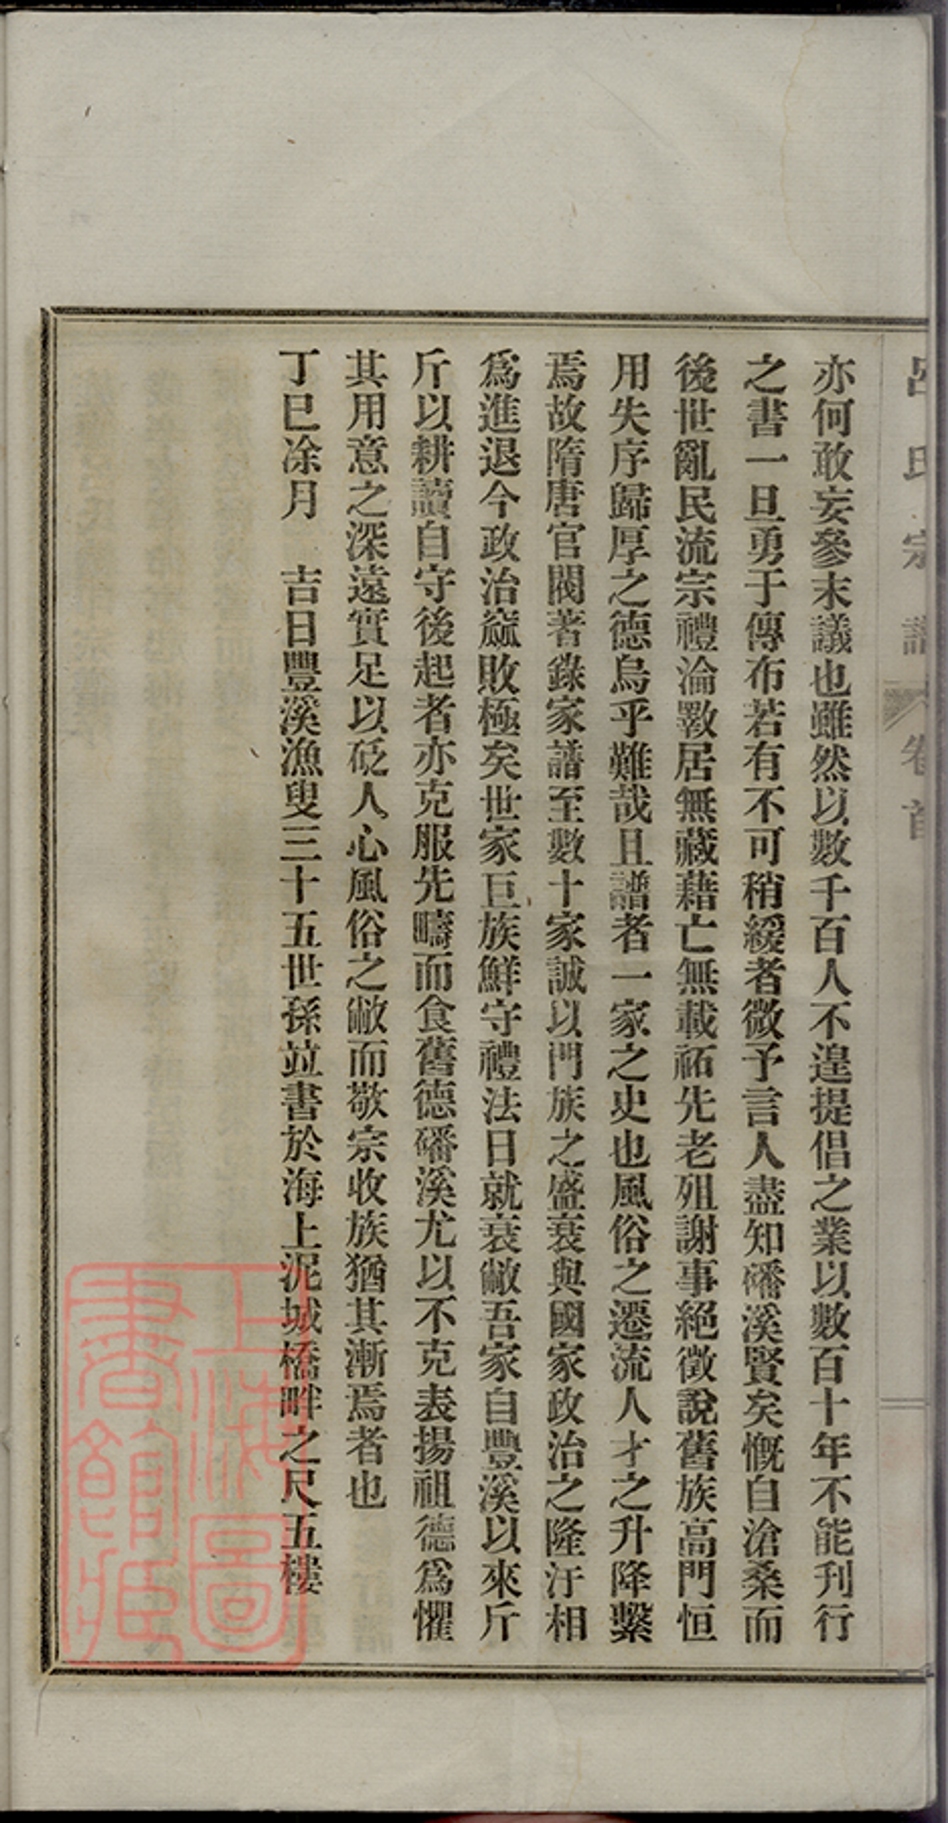 呂氏宗譜 卷首
亦何敢妄參末議也雖然以數千百人不遑提倡之業以數百十年不能刊行
之書一旦勇于傳布若有不可稍緩者微予言人盡知磻溪賢矣慨自滄桑而
後世亂民流宗禮淪斁居無藏藉亡無載祏先老殂謝事絕徵說舊族高門恒
用失序歸厚之德烏乎難哉且譜者一家之史也風俗之遷流人才之升降繫
焉故隋唐官閥著錄家譜至數十家誠以門族之盛衰與國家政治之隆汙相
爲進退今政治窳敗極矣世家巨族鮮守禮法日就衰敝吾家自豐溪以來斤
斤以耕讀自守後起者亦克服先疇而食舊德磻溪尤以不克表揚祖德爲懼
其用意之深遠實足以砭人心風俗之敝而敬宗收族猶其漸焉者也
丁巳涂月 吉日豐溪漁叟三十五世孫竝書於海上泥城橋畔之尺五樓
上海圖
書館藏